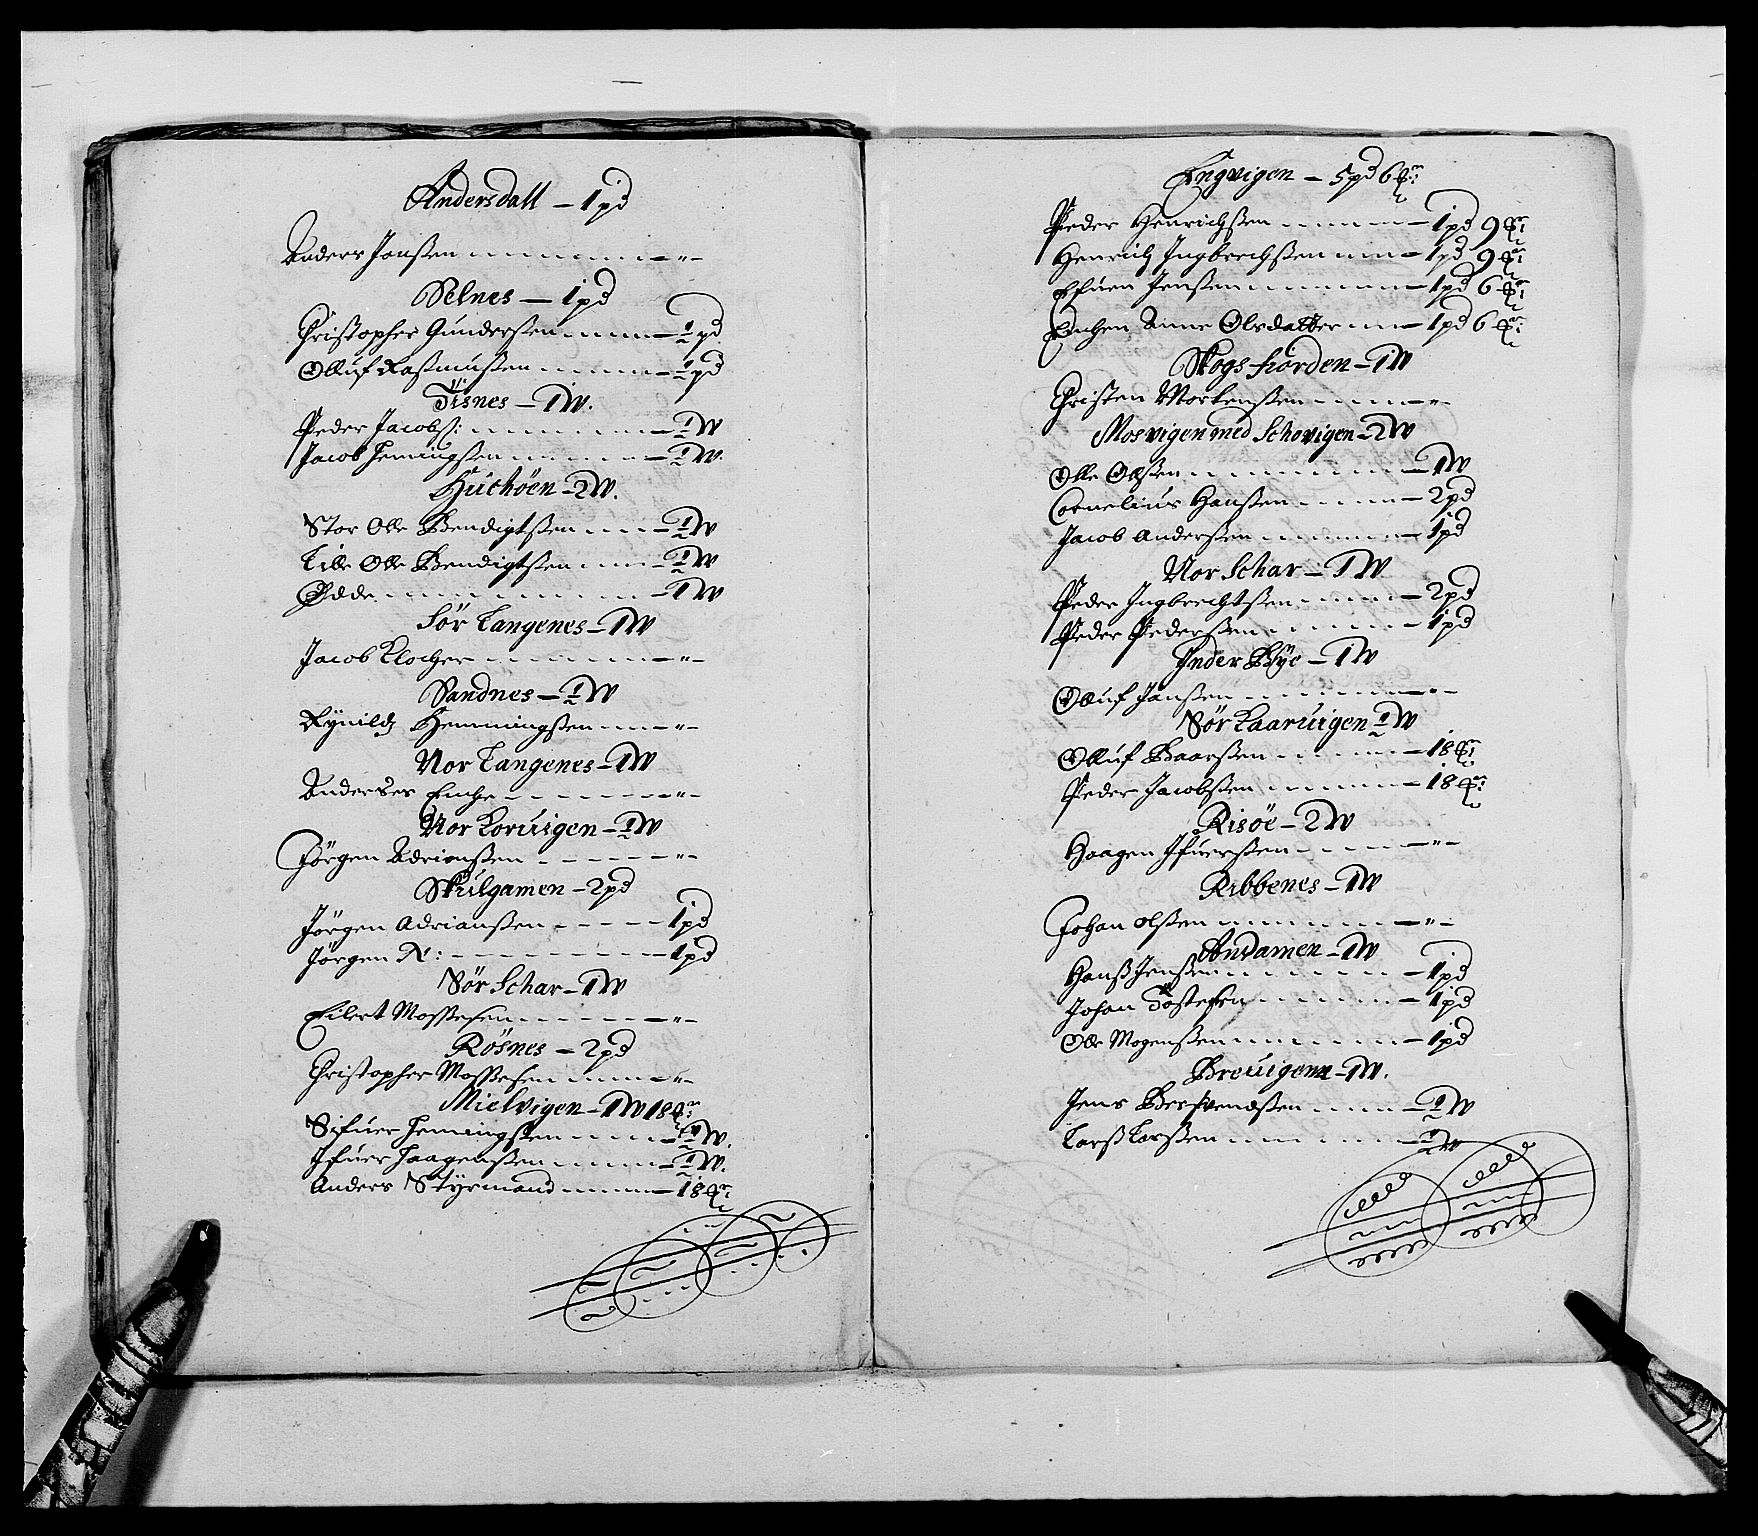 Andersdall – 1 pd
Anders Janßen - - - - - - - - - "
Selnes – 1 pd
Christopher Gunderßen - - - - ½ pd
Olluf Raßmußen - - - - - - ½ pd
Tisnes – 1 W.
Peder Jacobß: - - - - - - - ½ W
Jacob Hemingßen - - - - - - ½ W.
Huchöen – 2 W.
Stor Olle Bendigtßen - - - - ½ W
Lille Olle Bendigtßen - - - - ½ W
Ødde - - - - - - - - - - 1 W
Sör Langenes – 1 W
Jacob Klocher - - - - - - - "
Sandnes – ½ W
Hemmingßen - - - - "
Nor Langenes – 1 W
Anderses Enche - - - - - - - "
Nor Koruigen – ½ W
Jörgen Adrianßen - - - - - - "
Skulgamen – 2 pd
Jörgen Adrianßen - - - - - 1 pd
Jörgen R: - - - - - - - - 1 pd
Sör Schar – 1 W
Eilert Moßeßen - - - - - - - "
Rösnes – 2 pd
Christopher Moßeßen - - - - - "
Mielvigen – 1 W 18
Sifuer Hemingßen - - - - - ½ W.
Ifuer Haagenßen - - - - - ½ W.
Anders Styrmand - - - - - 18
Engvigen – 5 pd 6
Peder Henrichßen - - - - - - 1 pd 9
Henrich Ingbrechßen - - - - 1 pd 9
Efuen Jenßen - - - - - - - 1 pd 6
Enchen Anne Olsdatter - - - 1 pd 6
Skogsfiorden – 1 W
Christen Mortenßen - - - - - "
Mosvigen med Schovigen – 2 W
Olle Olßen - - - - - - - - 1 W
Cornelius Hanßen - - - - - 2 pd
Jacob Anderßen - - - - - - 1 pd
Nor Schar – 1 W
Peder Ingbrechtßen - - - - - 2 pd
Peder Pederßen - - - - - - 1 pd
Inder Bÿe – 1 W
Olluf Janßen - - - - - - - "
Sör Kaaruigen ½ W
Olluf Baarßen - - - - - - 18
Peder Jacobßen - - - - - - 18
Risöe – 2 W
Haagen Ifuerßen - - - - - "
Ribbenes – 1 W
Johan Olßen - - - - - - - - "
Andamen – 1 W
Hanß Jenßen - - - - - - - 1 pd
Johan - - - - - - 1 pd
Olle Mogenßen - - - - - - - 1 pd
Breuigenn – 1 W.
Jens Berßvendßen - - - - ½ W
Larß Larßen - - - - - - - ½ W